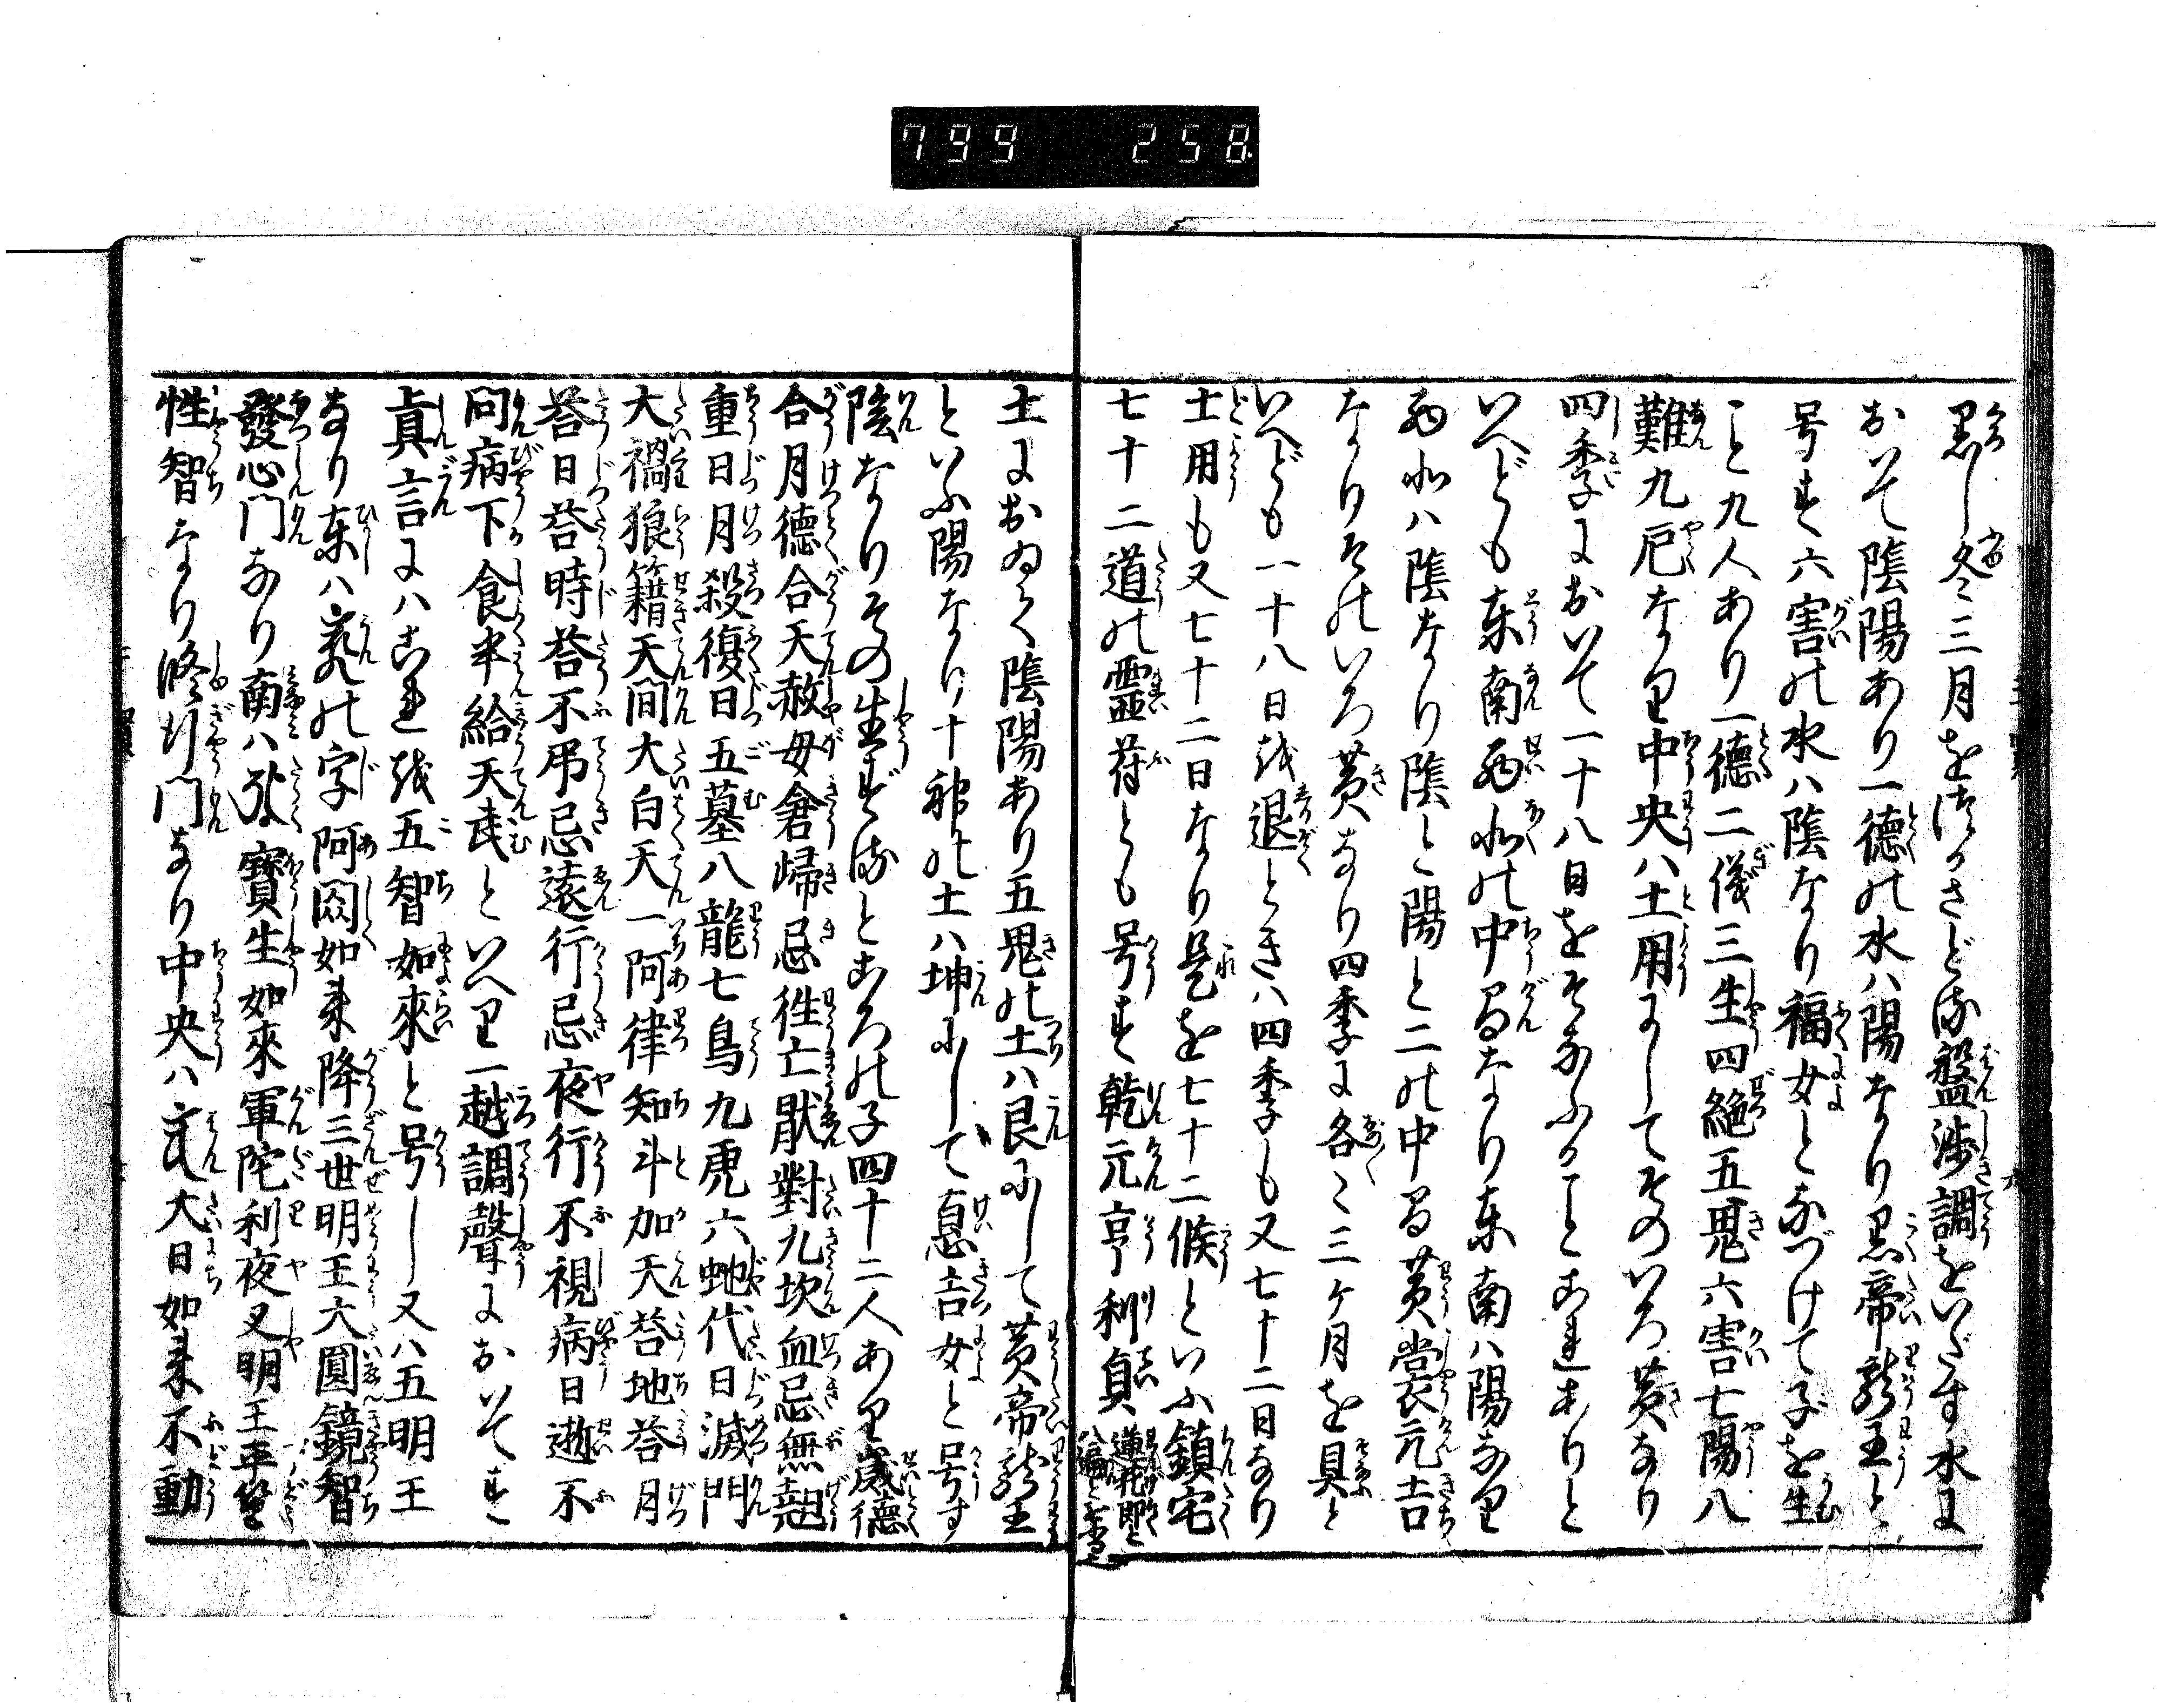 799 258
黒し冬三月をつかさどる盤渉調をいだす水に
おいて陰陽あり一徳の水ハ陽なり黒帝龍王と
号す六害の水ハ陰なり福女となづけて子を生
こと九人あり一徳二儀三生四絶五鬼六害七陽八
難九厄なり中央ハ土用にしてそのいろ黄なり
四季において一十八日をそなふることこれありと
いへども東南西北の中る なり東南ハ陽なり
西北ハ陰なり陰と陽と二の中る黄裳元吉
なりそのいろ黄なり四季に各〻三ケ月を具と
いへども一十八日を退ときハ四季も又七十二日なり
土用も又七十二日なり是を七十二候といふ鎮宅
七十二道の霊符とも号す乾元亨利貞
土におゐて陰陽あり五鬼の土ハ艮にして黄帝龍王
といふ陽なり十 の土ハ坤にして恵吉女と号す
陰なりその生ずるところの子四十二人あり歳徳
合月徳合天赦母倉帰忌往亡猒對九坎血忌無翹
重日月殺復日五墓八龍七鳥九虎六蛇代日滅門
大禍狼籍天間大白天一阿律知斗加天荅地荅月
荅日荅時荅不弔忌遠行忌夜行不視病日逝不
問病下食半給天 といへり一越調聲においてす
眞言にハこれを五智如來と号し又ハ五明王
なり東ハ の字阿閦如来降三世明王大圓鏡智
發心門なり南ハ 寶生如來軍陀利夜叉明王平等
性智なり修行門なり中央ハ 大日如来不動